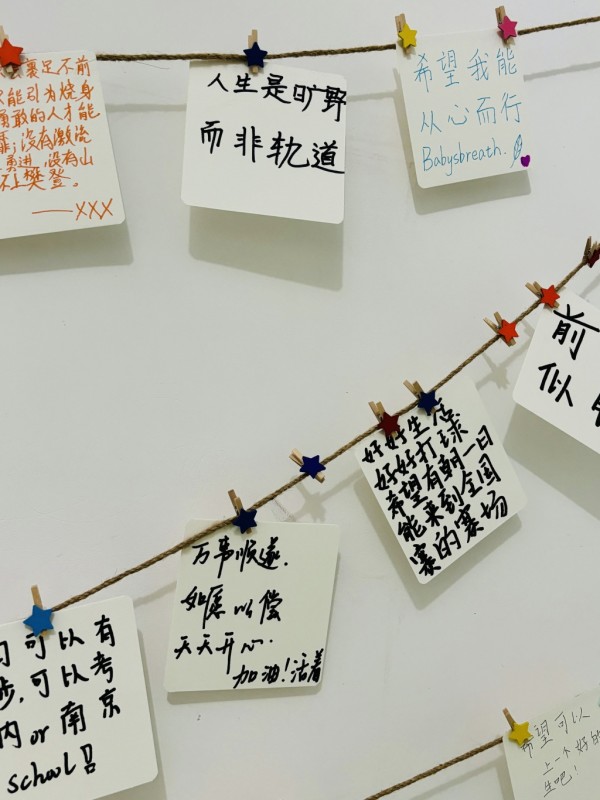 裹足不前
能引为烧身
勇敢的人才能
没有激流
勇进,没有山
上樊登。
——XXX
人生是旷野
而非轨道
希望我能
从心而行
Babysbreath.
前
似
好好生活
好好打球
希望有朝一日
能来到全国
赛的赛场
万事顺遂.
如愿以偿
天天开心.
加油!活着
可以有
步,可以考
内 or 南京
school!!
希望可以
上一个好的
生吧!